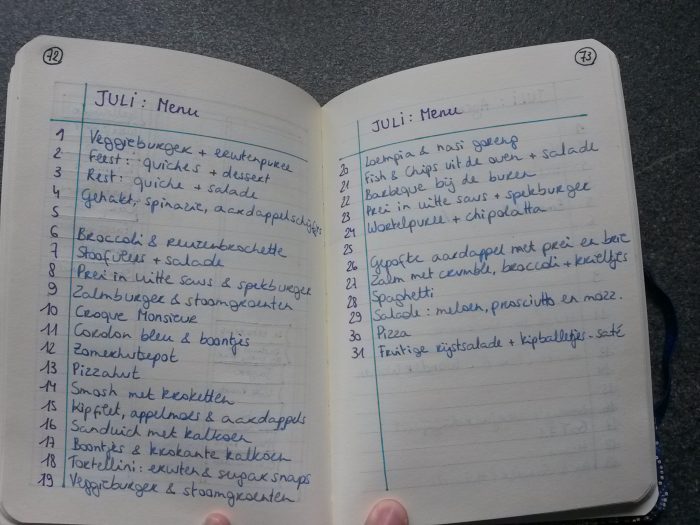 72
JULI: Menu
1 Veggieburger + erwtenpuree
2 Feest: quiches + dessert
3 Rest: quiche + salade
4 Gehakt, spinazie, aardappelschijfjes
5
6 Broccoli & reuzenbrochette
7 Stoofvlees + salade
8 Prei in witte saus & spekburger
9 Zalmburger & stoomgroenten
10 Croque Monsieur
11 Cordon bleu & boontjes
12 Zomerhutsepot
13 Pizzahut
14 Smash met kroketten
15 Kipfilet, appelmoes & aardappels
16 Sandwich met kalkoen
17 Boontjes & krokante kalkoen
18 Tortellini: erwten & sugar snaps
19 Veggieburger & stoomgroenten
73
JULI: Menu
20 Loempia & nasi goreng
21 Fish & Chips uit de oven + salade
22 Barbeque bij de buren
23 Prei in witte saus + spekburger
24 Wortelpuree + chipolatta
25
26 Gepofte aardappel met prei en brie
27 Zalm met crumble, broccoli + krieltjes
28 Spaghetti
29 Salade: meloen, prosciutto en mozz.
30 Pizza
31 Fruitige rijstsalade + kipballetjes-saté